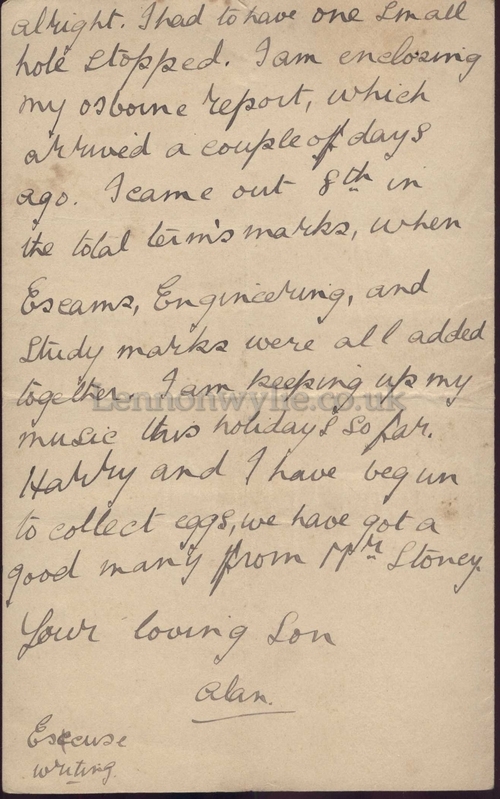 alright. I had to have one small
hole stopped. I am enclosing
my osborne report, which
arrived a couple of days
ago. I came out 8th in
the total term's marks, when
Escams, Engineering, and
Study marks were all added
together. I am keeping up my
Lennonwylie.co.uk
music this holidays so far.
Harry and I have begun
to collect eggs, we have got a
good many from Mr Stoney.
Your loving Son
Alan.
Excuse
writing.